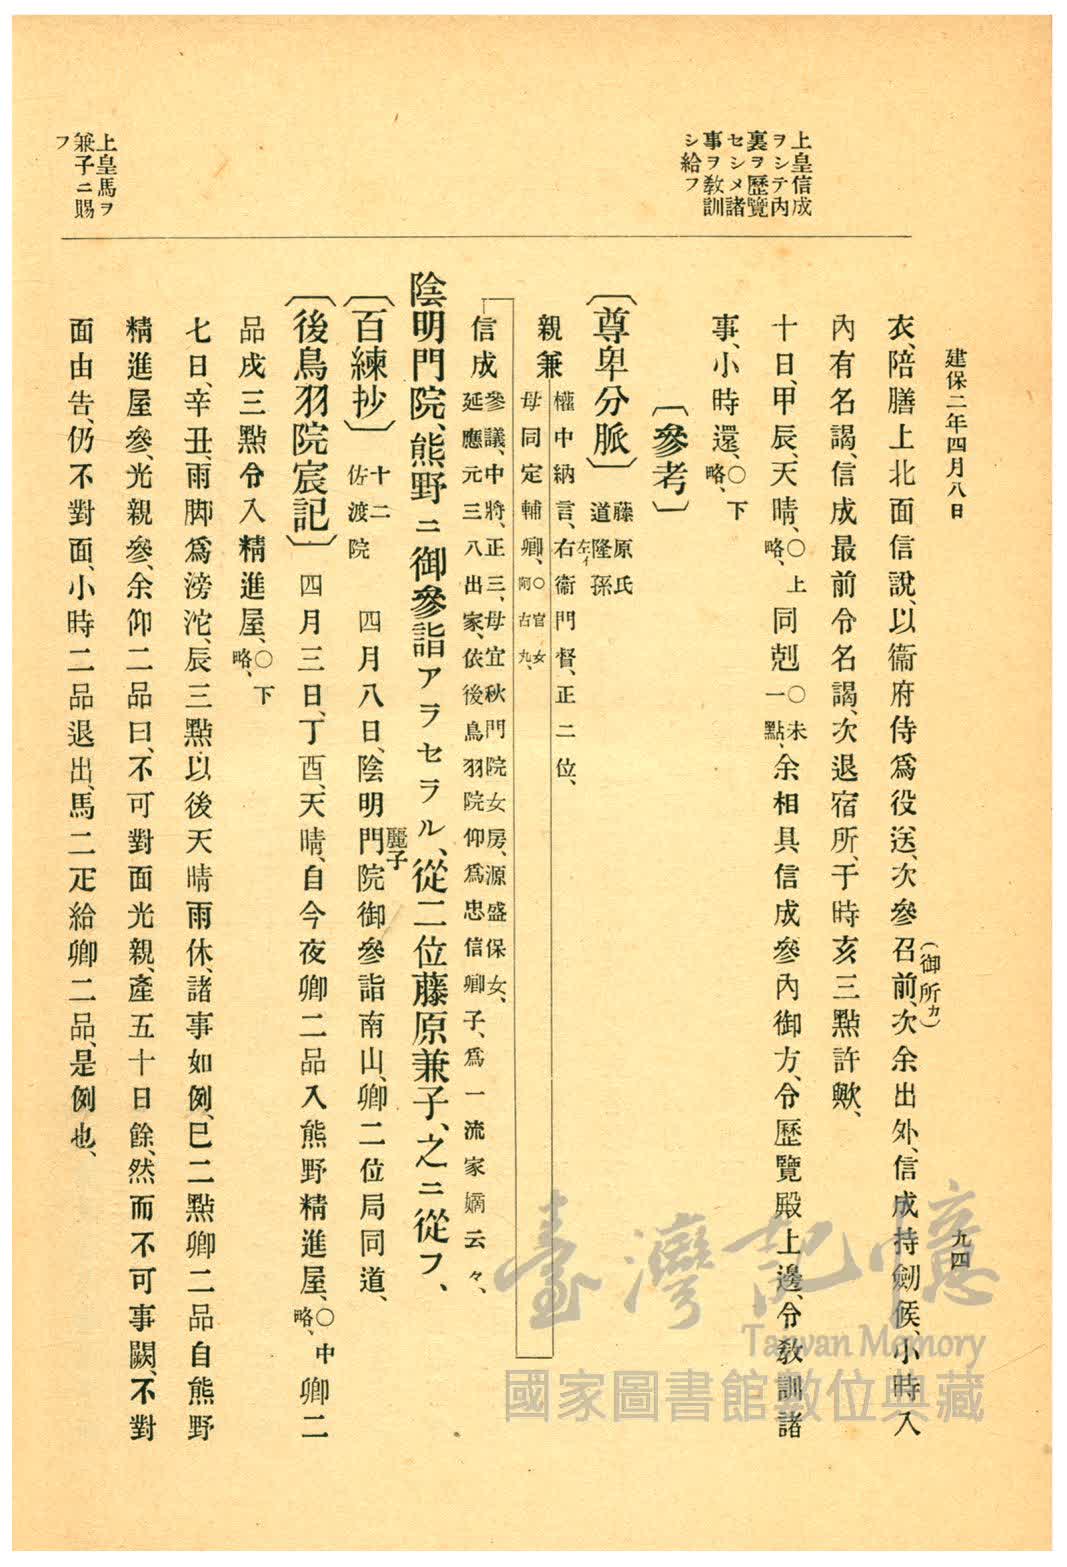 建保二年四月八日
九四
上皇信成
ヲシテ内
裏ヲ歷覽
セシメ諸
事ヲ敎訓
シ給フ
上皇馬ヲ
兼子ニ賜
フ
衣、陪膳上北面信說、以衞府侍爲役送、次參召前、次余出外、信成持劒候、小時入
(御所カ)
內有名謁、信成最前令名謁、次退宿所、于時亥三點許歟、
十日、甲辰、天晴、〇上略、同剋〇未一點、余相具信成參內御方、令歷覽殿上邊、令敎訓諸
事、小時還、〇下略、
〔參考〕
〔尊卑分脈〕藤原氏道隆孫
親兼
權中納言、右衞門督、正二位、
左イ
母同定輔卿、〇官女阿古丸、
信成
參議、中將、正三、母宜秋門院女房、源盛保女、
延應元三八出家、依後鳥羽院仰爲忠信卿子、爲一流家嫡云々、
陰明門院、熊野ニ御參詣アラセラル、從二位藤原兼子、之ニ從フ、
〔百練抄〕十二佐渡院 四月八日、陰明門院御參詣南山、卿二位局同道、
麗子
〔後鳥羽院宸記〕四月三日、丁酉、天晴、自今夜卿二品入熊野精進屋、〇中略、卿二
品戌三點令入精進屋、〇下略、
七日、辛丑、雨脚爲滂沱、辰三點以後天晴雨休、諸事如例、巳二點卿二品自熊野
精進屋參、光親參、余仰二品曰、不可對面光親、產五十日餘、然而不可事闕、不對
面由告、仍不對面、小時二品退出、馬二疋給卿二品、是例也、
臺灣記憶
Taiwan Memory
國家圖書館數位典藏